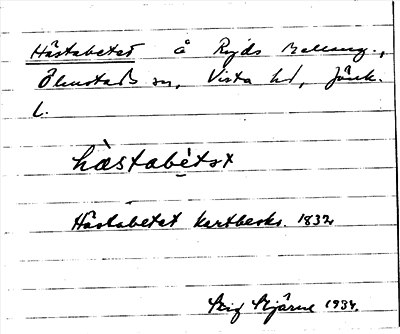 Hästabetet å Ryds Mellang.,
Ölmstads sn, Vista hd, Jönk.
l.
hàstabètət
Hästabetet Kartbeskr. 1832
Stig Stjärne 1934.